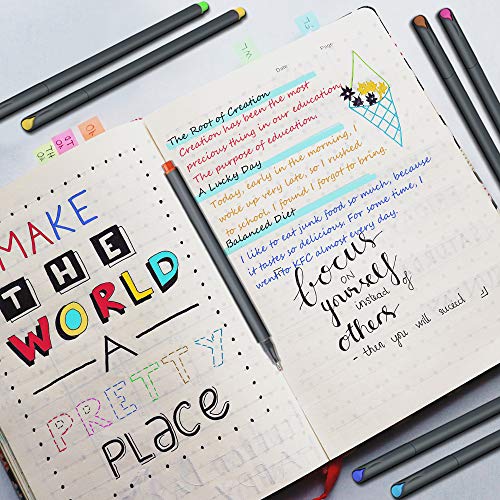 MAKE
THE
WORLD
A
PRETTY
PLACE
TH
TO
Date
Page
The Root of Creation
Creation has been the most
precious thing in our education.
The purpose of education.
A Lucky Day
Today, early in the morning, I
woke up very late, so I rushed
to school, I found I forgot to bring.
Balanced Diet
I like to eat junk food so much, because
it tastes so delicious. For some time, I
went to KFC almost every day.
focus
ON
yourself
instead of
others
then you will succeed